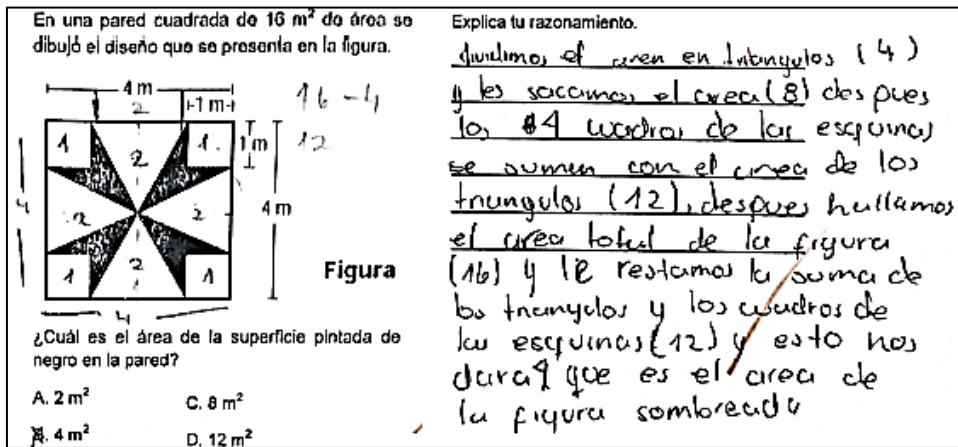 En una pared cuadrada de 16 m² de área se
dibujó el diseño que se presenta en la figura.
4 m
2
1 m
16 - 4
12
1
1.
1 m
2
4
2
2
4 m
2
1
1
4
Figura
¿Cuál es el área de la superficie pintada de
negro en la pared?
A. 2 m²
C. 8 m²
B. 4 m²
D. 12 m²
Explica tu razonamiento.
dividimos el area en triangulos (4)
y les sacamos el area (8) despues
los 4 cuadros de las esquinas
se sumen con el area de los
triangulos (12), despues hallamos
el area total de la figura
(16) y le restamos la suma de
los triangulos y los cuadros de
las esquinas (12) y esto nos
dara 4 que es el area de
la figura sombreada